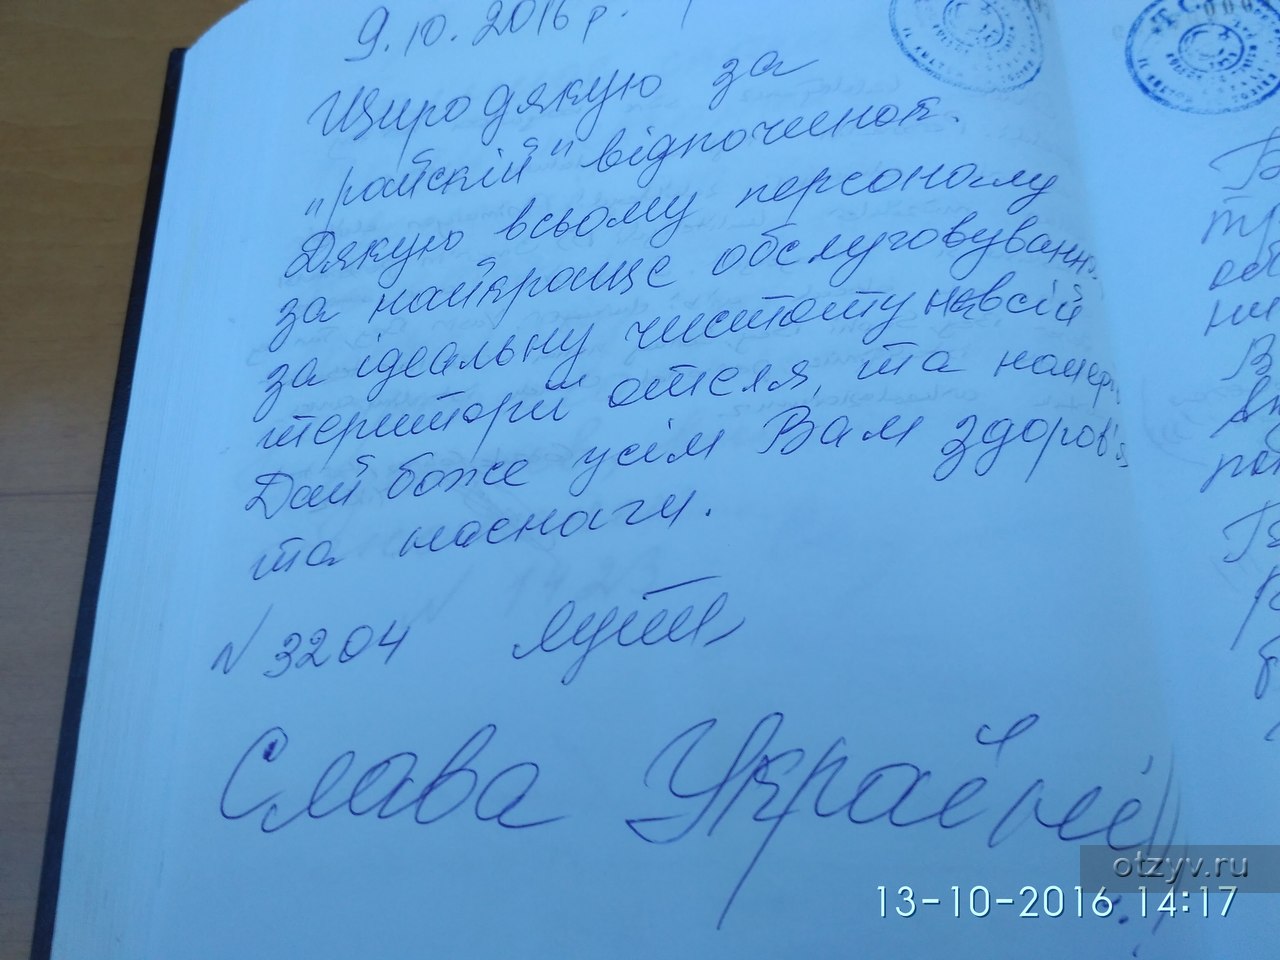 9.10.2016 р.
Щиро дякую за
"райскій" відпочинок.
Дякую всьому персоналу
за найкраще обслуговування
за ідеальну чистоту на всій
території отеля, та номері
Дай боже усім Вам здоров'я
та наснаги.
N 3204
Слава Україні!
otzyv.ru
13-10-2016 14:17